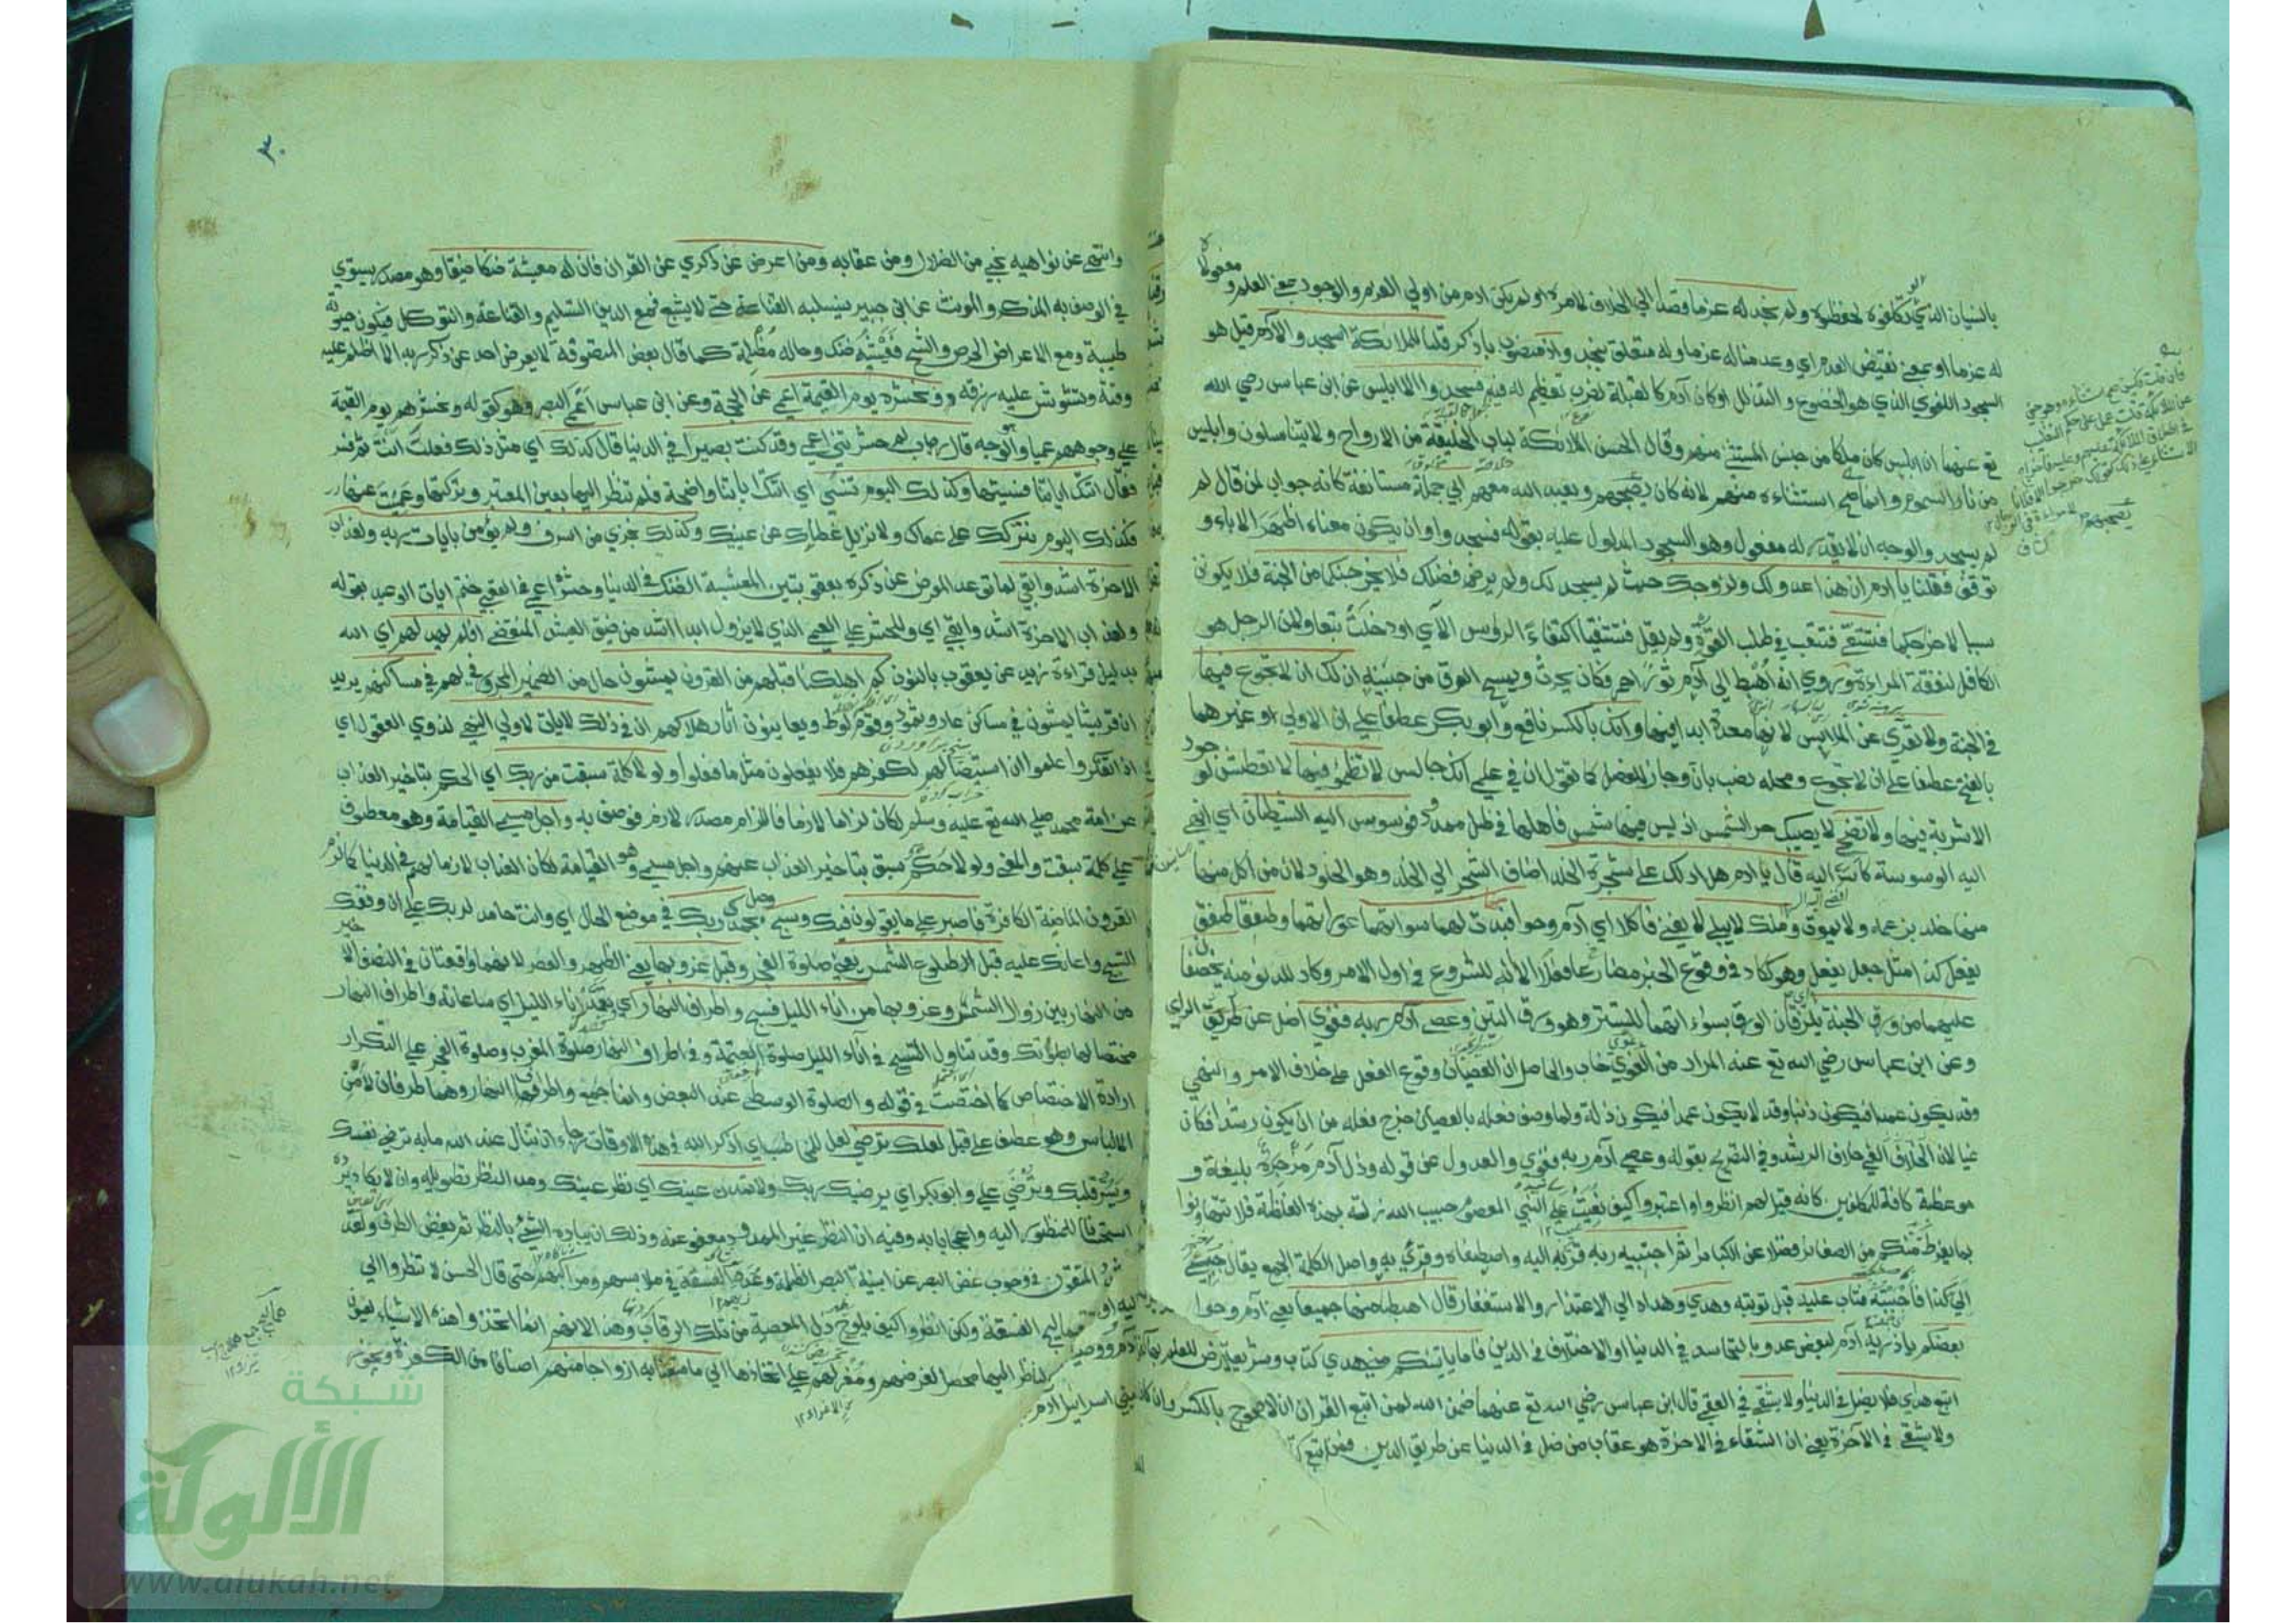 بالنسيان الذي لحفظوه ولم نجد له عزما قصدا الي الخلاف لامره او لم يكن ادم من اولي العزم والوجود بمعنى العلم ومفعولاه
له عزما او بمعنى نقيض العدم اي وعدمنا له عزما وله متعلق بنجد واذ منصوب باذكر قلنا للملائكة اسجدوا لآدم قيل هو
السجود اللغوي الذي هو الخضوع والتذلل او كان آدم كالقبلة لضرب تعظيم له فيه فسجدوا الا ابليس عن ابن عباس رضي الله
تع عنهما ان ابليس كان ملكا من جنس المستثنى منهم وقال الحسن الملائكة لباب الخليقة من الارواح ولا يتناسلون وابليس
من نار السموم وانما صح استثناءه منهم لانه كان يصحبهم ويعبد الله معهم ابي جملة مستانفة كانه جواب لمن قال لم
لم يسجد والوجه ان لا يقدر له مفعول وهو السجود المدلول عليه بقوله فسجدوا وان يكون معناه اظهر الاباء و
توقف فقلنا يا ادم ان هذا عدو لك ولزوجك حيث لم يسجد لك ولم ير فضلك فلا يخرجنكما من الجنة فلا يكونن
سببا لاخراجكما فتشقى فتتعب في طلب القوت ولم يقل فتشقيا اكتفاء لرؤس الآي او دخلت تبعا ولان الرجل هو
الكافل لنفقة المراءة وروي انه اهبط الي آدم ثور احمر فكان يحرث ويمسح العرق من جبينه ان لك ان لا تجوع فيها
في الجنة ولا تعرى عن الملابس لانها معدة ابدا فيها وانك بالكسر نافع وابو بكر عطفا علي ان الاولي او غيرهما
بالفتح عطفا علي ان لا تجوع ومحله نصب بان وجاز للفصل كما تقول ان في علمي انك جالس لا تظمؤ فيها لا تعطش لوجود
الاشربة فيها ولا تضحى لا يصيبك حر الشمس اذ ليس فيها شمس فاهلها في ظل ممدود فوسوس اليه الشيطان اي انهى
اليه الوسوسة كاسر اليه قال يا ادم هل ادلك على شجرة الخلد اضاف الشجر الي الخلد وهو الخلود لان من اكل منها
منها خلد بزعمه ولا يموت وملك لا يبلى لا يفنى فاكلا اي آدم وحوا فبدت لهما سواتهما عوراتهما وطفقا طفق
يفعل كذا مثل جعل يفعل وهو ككاد في وقوع الخبر مضارعا الا انه للشروع في اول الامر وكاد للدنو منه يخصفان
عليهما من ورق الجنة يلزقان الورق بسواءتهما للتستر وهو ورق التين وعصى آدم ربه فغوى اضل عن طريق الراي
وعن ابن عباس رضي الله تع عنه المراد من الغوي خاب والحاصل ان العصيان وقوع الفعل على خلاف الامر والنهي
وقد يكون عمدا فيكون ذنبا وقد لا يكون عمدا فيكون ذلة ولما وصف فعله بالعصيان خرج فعله من ان يكون رشدا فكان
غيا لان الغي خلاف الرشد وفي التصريح بقوله وعصى آدم ربه فغوى والعدول عن قوله وذل آدم مزجرة بليغة و
موعظة كافة للمكلفين كانه قيل لهم انظروا واعتبروا كيف نعيت علي النبي المعصوم حبيب الله زلته بهذه الغلظة فلا تتهاونوا
بما يفرط منكم من الصغائر فضلا عن الكبائر ثم اجتبيه ربه قربه اليه واصطفاه وقرئ به واصل الكلمة الجمع يقال
الي كذا فاجتبيته فتاب عليه قبل توبته وهدى وهداه الي الاعتذار والاستغفار قال اهبطا منها جميعا يعني آدم وحوا
بعضكم يا ذرية آدم لبعض عدو بالتحاسد في الدنيا او الاختلاف في الدين فاما ياتينكم مني هدى كتاب وشريعة
اتبع هداي فلا يضل في الدنيا ولا يشقى في العقبى قال ابن عباس رضي الله تع عنهما ضمن الله لمن اتبع القران ان لا
ولا يشقى في الآخرة يعني ان الشقاء في الاخرة هو عقاب من ضل في الدنيا عن طريق الدين فمن اتبع
٣٠
وانتهى عن نواهيه نجي من الضلال ومن عقابه ومن اعرض عن ذكري عن القران فان له معيشة ضنكا ضيقا وهو مصدر يستوي
في الوصف به المذكر والمونث عن ابن جبير يسلبه القناعة حتى لا يشبع فمع الدين التسليم والقناعة والتوكل فيكون حيوته
طيبة ومع الاعراض الحرص والشح فعيشه ضنك وحاله مظلمة كما قال بعض المتصوفة لا يعرض احد عن ذكر ربه الا اظلم عليه
وقته وتشوش عليه رزقه ونحشره يوم القيمة اعمى عن الحجة وعن ابن عباس اعمى البصر وهو كقوله ونحشرهم يوم القيمة
علي وجوههم عميا وهو الوجه قال رب لم حشرتني اعمى وقد كنت بصيرا في الدنيا قال كذلك اي مثل ذلك فعلت انت ثم فسر
فقال اتتك اياتنا فنسيتها وكذلك اليوم تنسى اي اتتك اياتنا واضحة فلم تنظر اليها بعين المعتبر وتركتها وعميت عنها
فكذلك اليوم نتركك على عماك ولا نزيل غطاءك عن عينيك وكذلك نجزي من اسرف ولم يؤمن بايات ربه ولعذاب
الاخرة اشد وابقى لما توعد المعرض عن ذكره بعقوبتين المعيشة الضنك في الدنيا وحشره اعمى في العقبى ختم ايات الوعيد بقوله
ولعذاب الاخرة اشد وابقى اي وللحشر علي العمى الذي لا يزول ابدا اشد من ضيق العيش المنقضي افلم يهد لهم اي الله
بدليل قراءة زيد عن يعقوب بالنون كم اهلكنا قبلهم من القرون يمشون حال من الضمير المجرور في لهم في مساكنهم يريد
ان قريشا يمشون في مساكن عاد وثمود وقوم لوط ويعاينون آثار هلاكهم ان في ذلك لايات لاولي النهى لذوي العقول اي
اذا تفكروا علموا ان استيصالهم لكفرهم فلا يفعلون مثل ما فعلوا ولولا كلمة سبقت من ربك اي الحكم بتاخير العذاب
عن امة محمد صلى الله تع عليه وسلم لكان لزاما لازما فاللزام مصدر لازم فوصف به واجل مسمى القيامة وهو معطوف
علي كلمة سبقت والمعنى ولولا حكم سبق بتاخير العذاب عنهم واجل مسمى وهو القيامة لكان العذاب لازما لهم في الدنيا كما لزم
القرون الماضية الكافرة فاصبر على ما يقولون فيك وسبح وصل بحمد ربك في موضع الحال اي وانت حامد لربك علي ان وفقك
التسبيح واعانك عليه قبل طلوع الشمس يعني صلوة الفجر وقبل غروبها يعني الظهر والعصر لانهما واقعتان في النصف الاخير
من النهار بين زوال الشمس وغروبها ومن اناء الليل فسبح واطراف النهار اي وتعهد اناء الليل اي ساعاته واطراف النهار
مختصا لهما بصلوتك وقد تناول التسبيح في آناء الليل صلوة العتمة وفي اطراف النهار صلوة المغرب وصلوة الفجر على التكرار
ارادة الاختصاص كما اختصت في قوله والصلوة الوسطى عند البعض وانما جمع واطراف النهار وهما طرفان لامن
الالباس وهو عطف على قبل لعلك ترضى لعل للمخاطب اي اذكر الله في هذه الاوقات رجاء ان تنال عند الله مابه ترضى نفسك
ويسر قلبك وترضى علي وابو بكر اي يرضيك ربك ولا تمدن عينيك اي نظر عينيك ومد النظر تطويله وان لا يكاد يرده
استحسانا للمنظور اليه واعجابا به وفيه ان النظر غير الممدود معفو عنه وذلك ان يباده الشيء بالنظر ثم يغض الطرف ولقد
شدد المتقون في وجوب غض البصر عن ابنية الظلمة وعدد الفسقة في ملابسهم ومراكبهم حتى قال الحسن لا تنظروا الي
الفسقة ولكن انظروا كيف يلوح ذل المعصية من تلك الرقاب وهذا لانهم انما اتخذوا هذه الاشياء لعيون
لناظر اليها محصل لغرضهم ومغر لهم علي اتخاذها الي ما متعنا به ازواجا منهم اصنافا من الكفرة ويجوز
شبكة
الألوكة
www.alukah.net